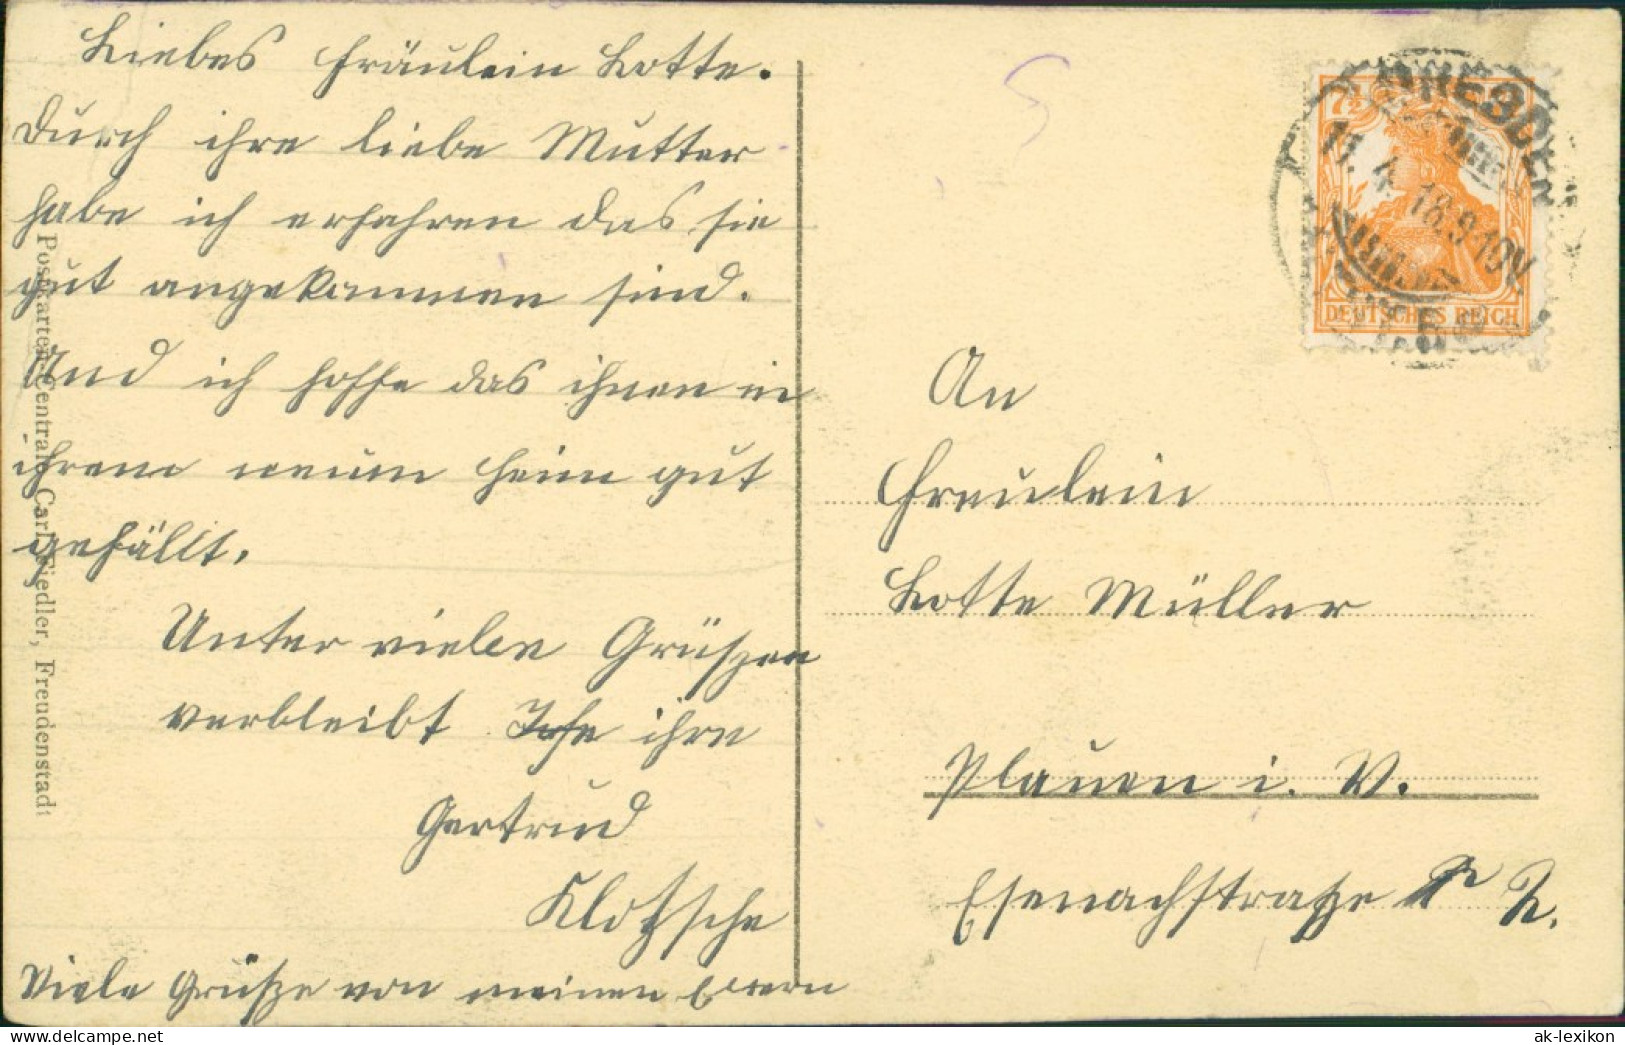 Liebes Fräulein Lotte.
Durch ihre liebe Mutter
habe ich erfahren das sie
gut angekommen sind.
Und ich hoffe das ihnen in
ihrem neuen Heim gut
gefällt.
Unter vielen Grüßzen
verbleibt ihre
Gertrud
Klotzsche
Viele Grüße von meinen Eltern
Postkarten-Centrale Carl Fiedler, Freudenstadt
7½
DEUTSCHES REICH
DRESDEN
17. 4. 18. 9-10V
An
Freulein
Lotte Müller
Plauen i. V.
Esenachstraße
ak-lexikon
© www.delcampe.net
ak-lexikon